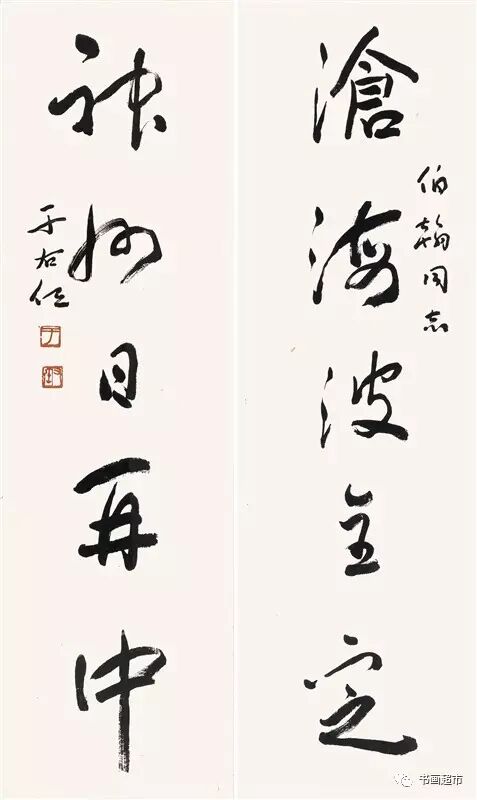 伯翰同志
滄海波全定
神州日再中
于右任
书画超市